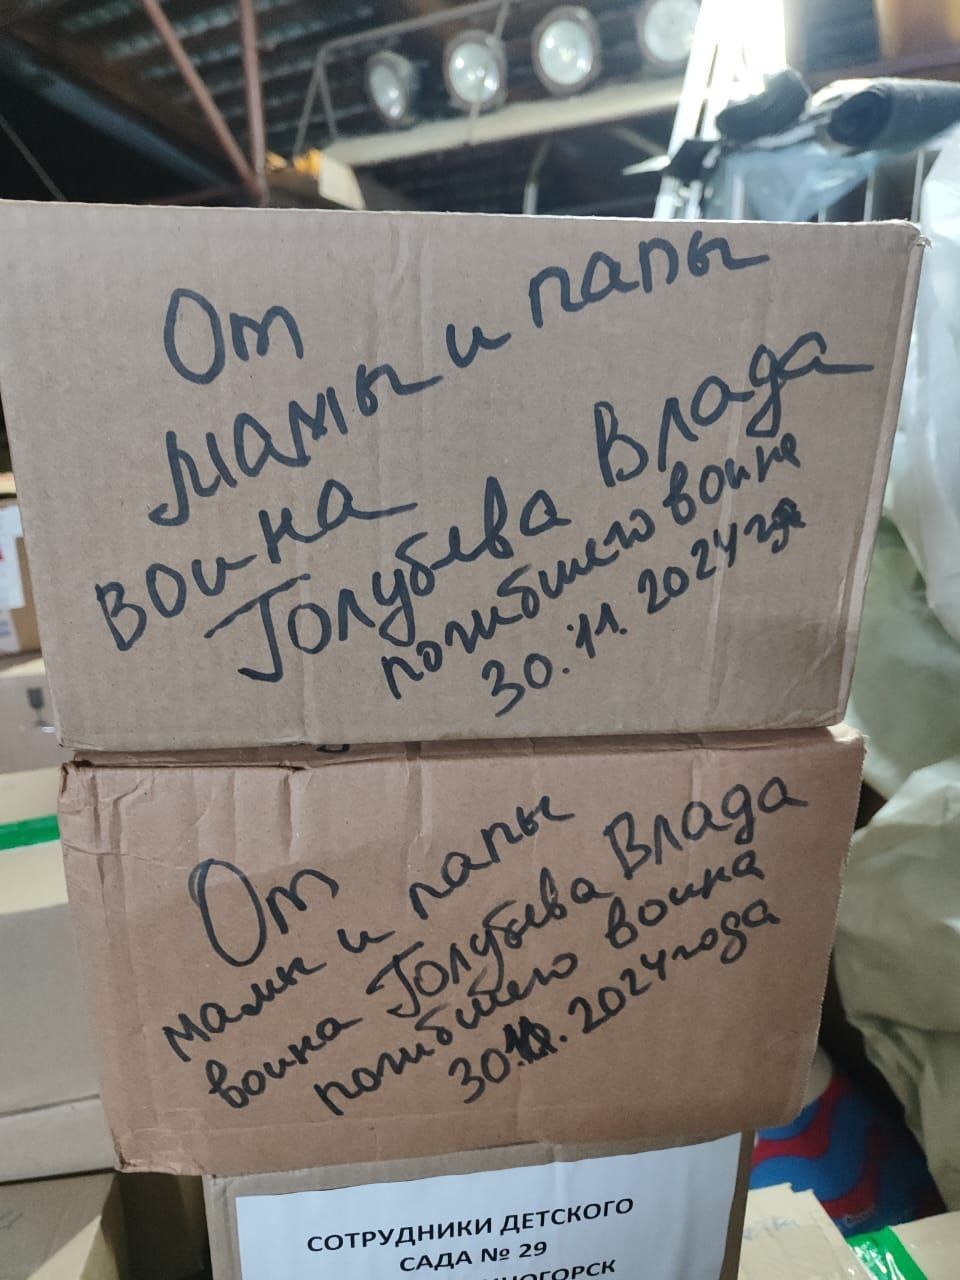 От
мамы и папы
воина
Голубева Влада
погибшего воина
30.11.2024 года
От
мамы и папы
воина Голубева Влада
погибшего воина
30.11.2024 года
СОТРУДНИКИ ДЕТСКОГО
САДА № 29
НОГОРСК